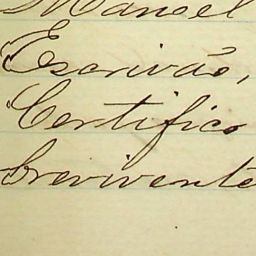 Manoel
Escrivão,
Certifico
brevivente